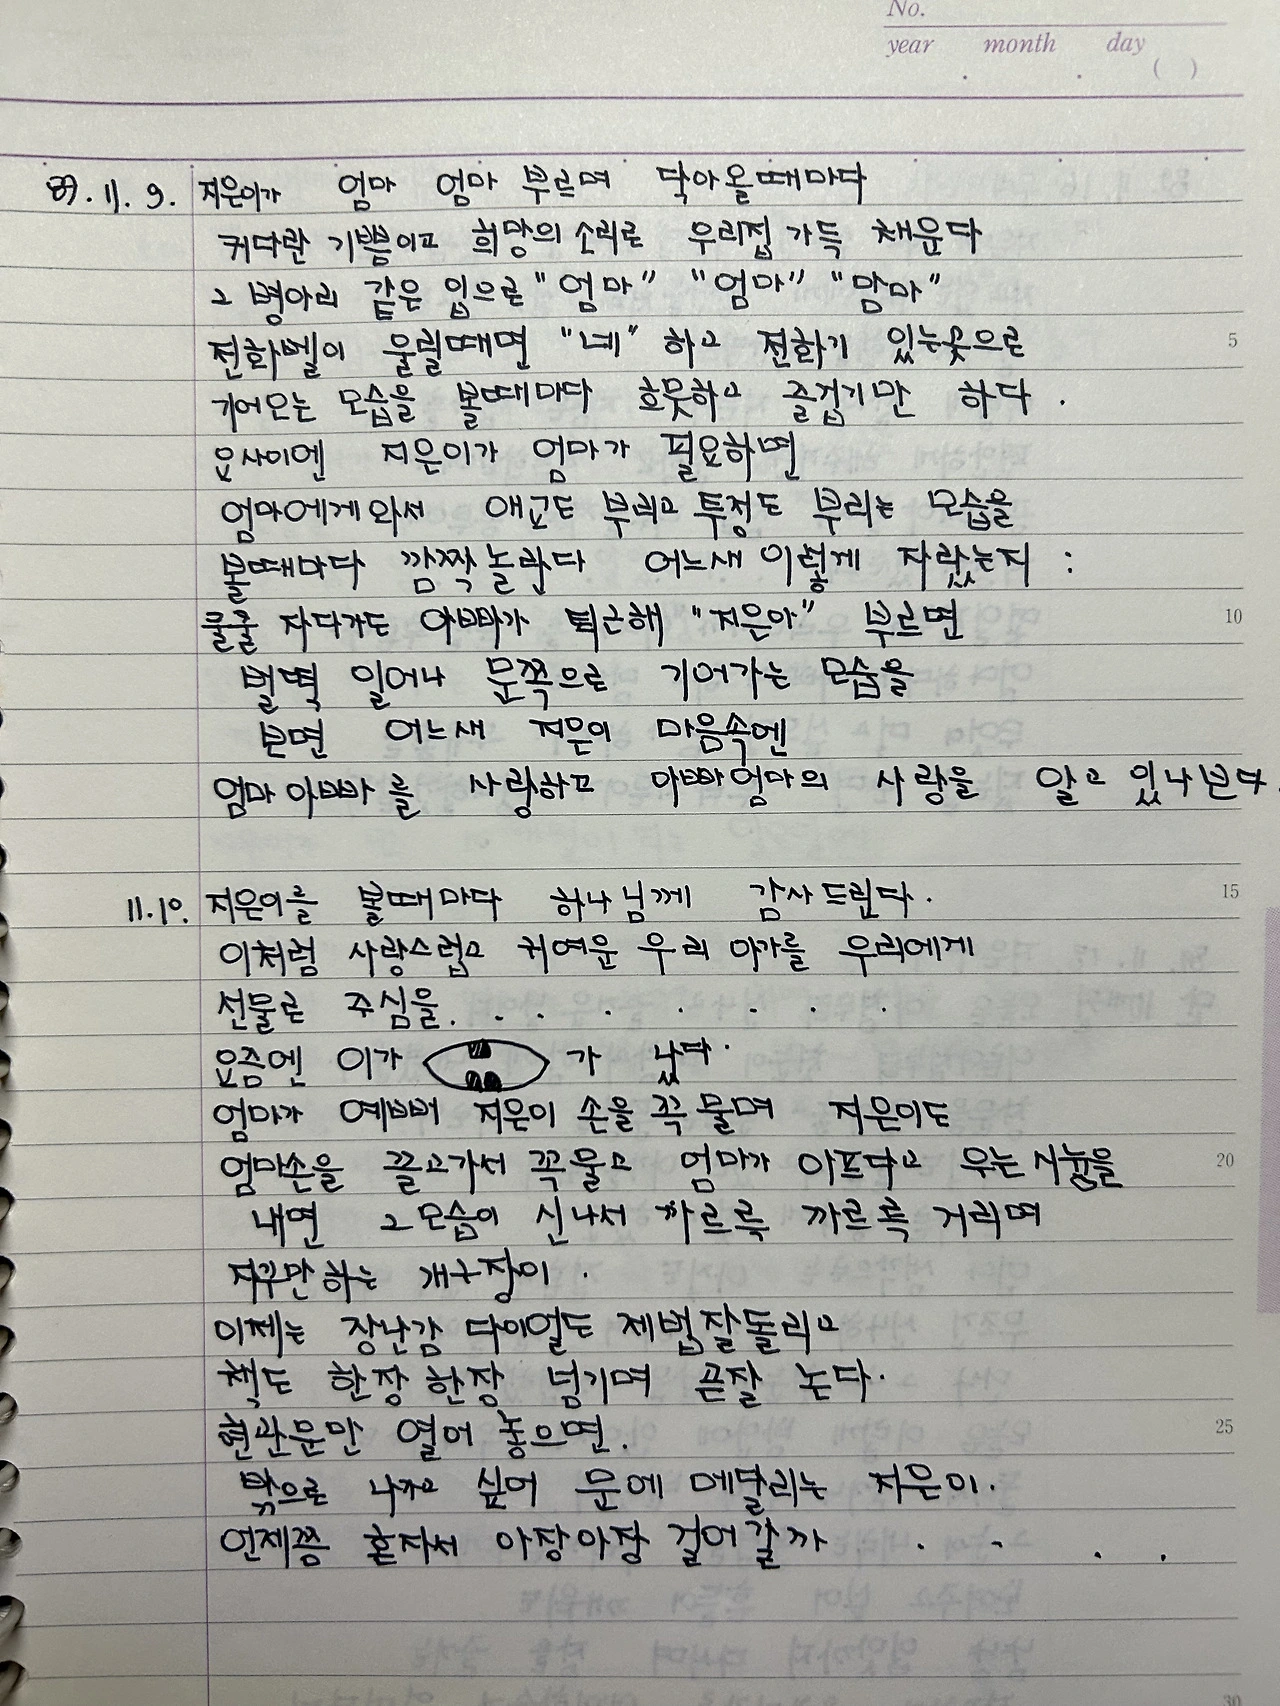 No.
year month day
( )
89. 11. 9. 지은이가 엄마 엄마 부르며 닥아올때마다
커다란 기쁨이고 희망의 소리로 우리집 가득 채운다
그 병아리 같은 입으로 "엄마" "엄마" "맘마"
전화벨이 울릴때면 "네" 하고 전화기 있는곳으로
5
기어오는 모습을 볼때마다 흐뭇하고 즐겁기만 하다.
요사이엔 지은이가 엄마가 필요하면
엄마에게와서 애교도 부리고 투정도 부리는 모습을
볼때마다 깜짝놀란다 어느새 이렇게 자랐는지 :
쿨쿨 자다가도 아빠가 퇴근해 "지은아" 부르면
10
벌떡 일어나 문쪽으로 기어가는 모습을
보면 어느새 지은이 마음속엔
엄마아빠를 사랑하고 아빠엄마의 사랑을 알고 있나보다.
11.10. 지은이를 볼때마다 하나님께 감사드린다.
15
이처럼 사랑스럽고 귀여운 우리 아가를 우리에게
선물로 주심을. . . . . . . .
요즘엔 이가 가 났다.
엄마가 예뻐 지은이 손을 꼭 물며 지은이도
엄마손을 끌고가서 꼭물고 엄마가 아프다고 우는시늉을
20
내면 그모습이 신나서 까르륵 까르륵 거리며
자꾸만하는 개구장이.
이제는 장난감 다이얼도 제법잘돌리고
책도 한장 한장 넘기며 곧잘 논다.
현관문만 열어 놓으면.
25
밖으로 나가고 싶어 문에 메달리는 지은이.
언제쯤 혼자서 아장아장 걸어갈까 . . . .
30